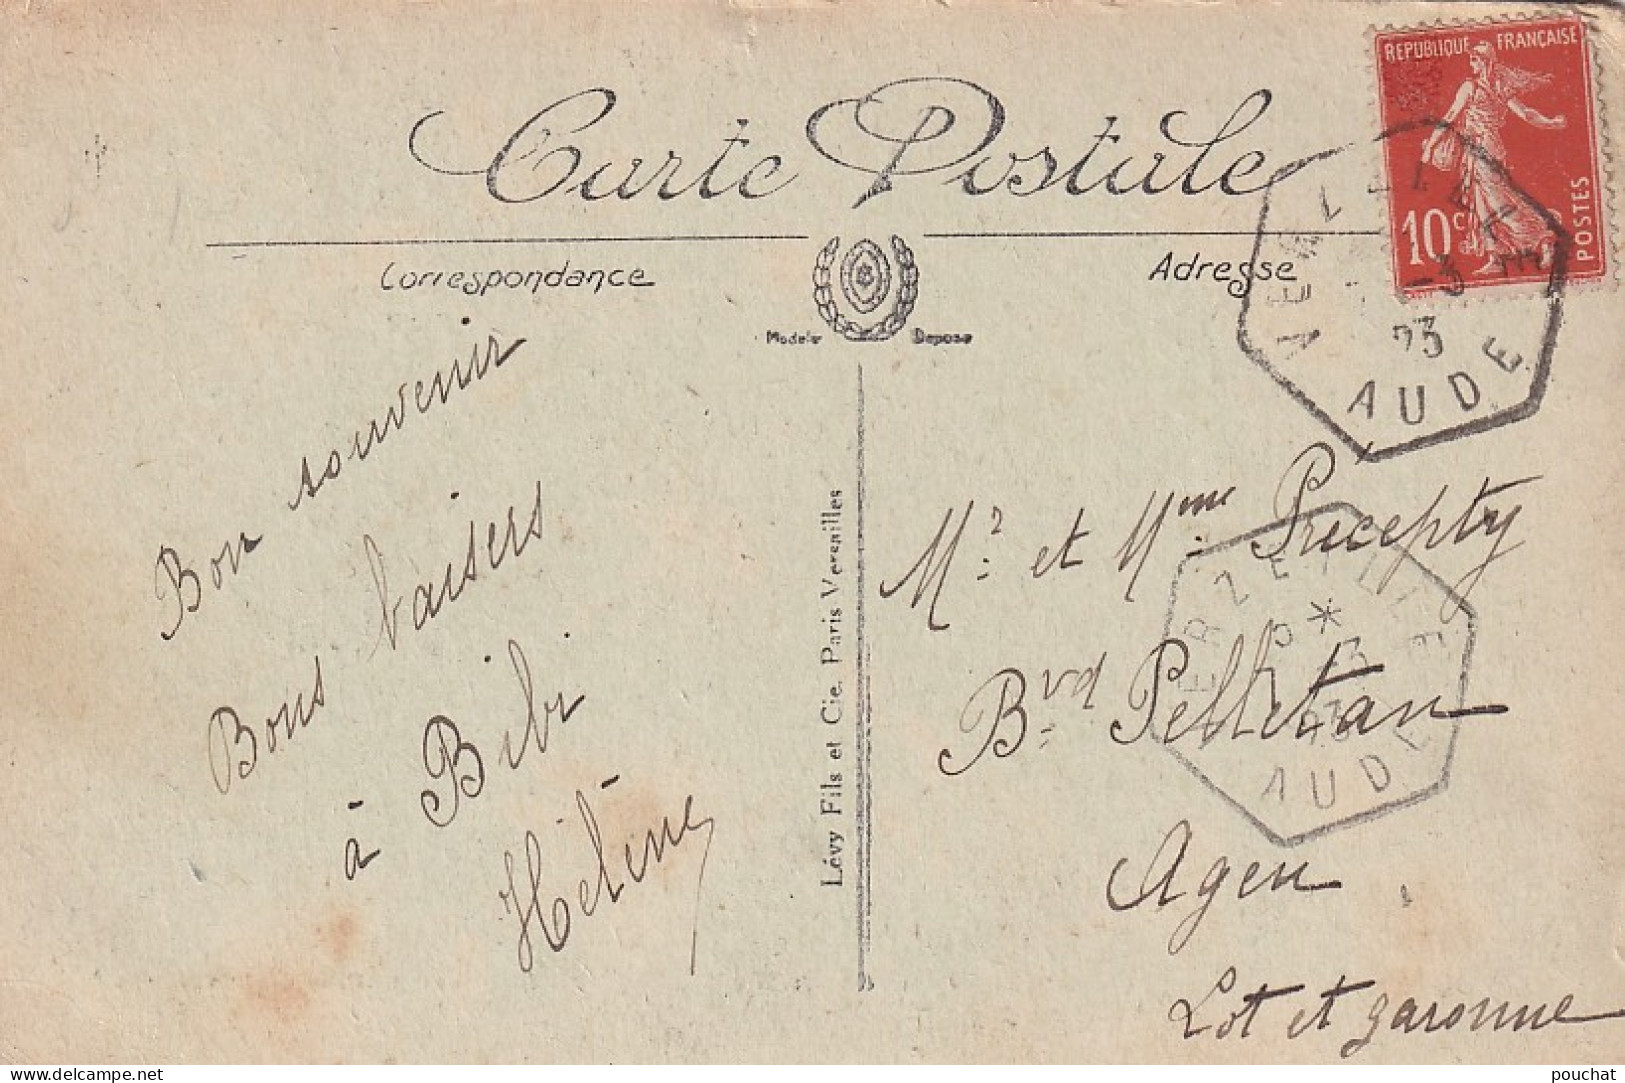 Carte Postale
Correspondance
Adresse
Modele Depose
REPUBLIQUE FRANÇAISE
10c
POSTES
23
AUDE
Bon souvenir
Bons baisers
à Bibi
Hélène
Lévy Fils et Cie. Paris Versailles
Mr et Mme Précepty
Bvd Pelletan
Agen
Lot et garonne
AUDE
© pouchat